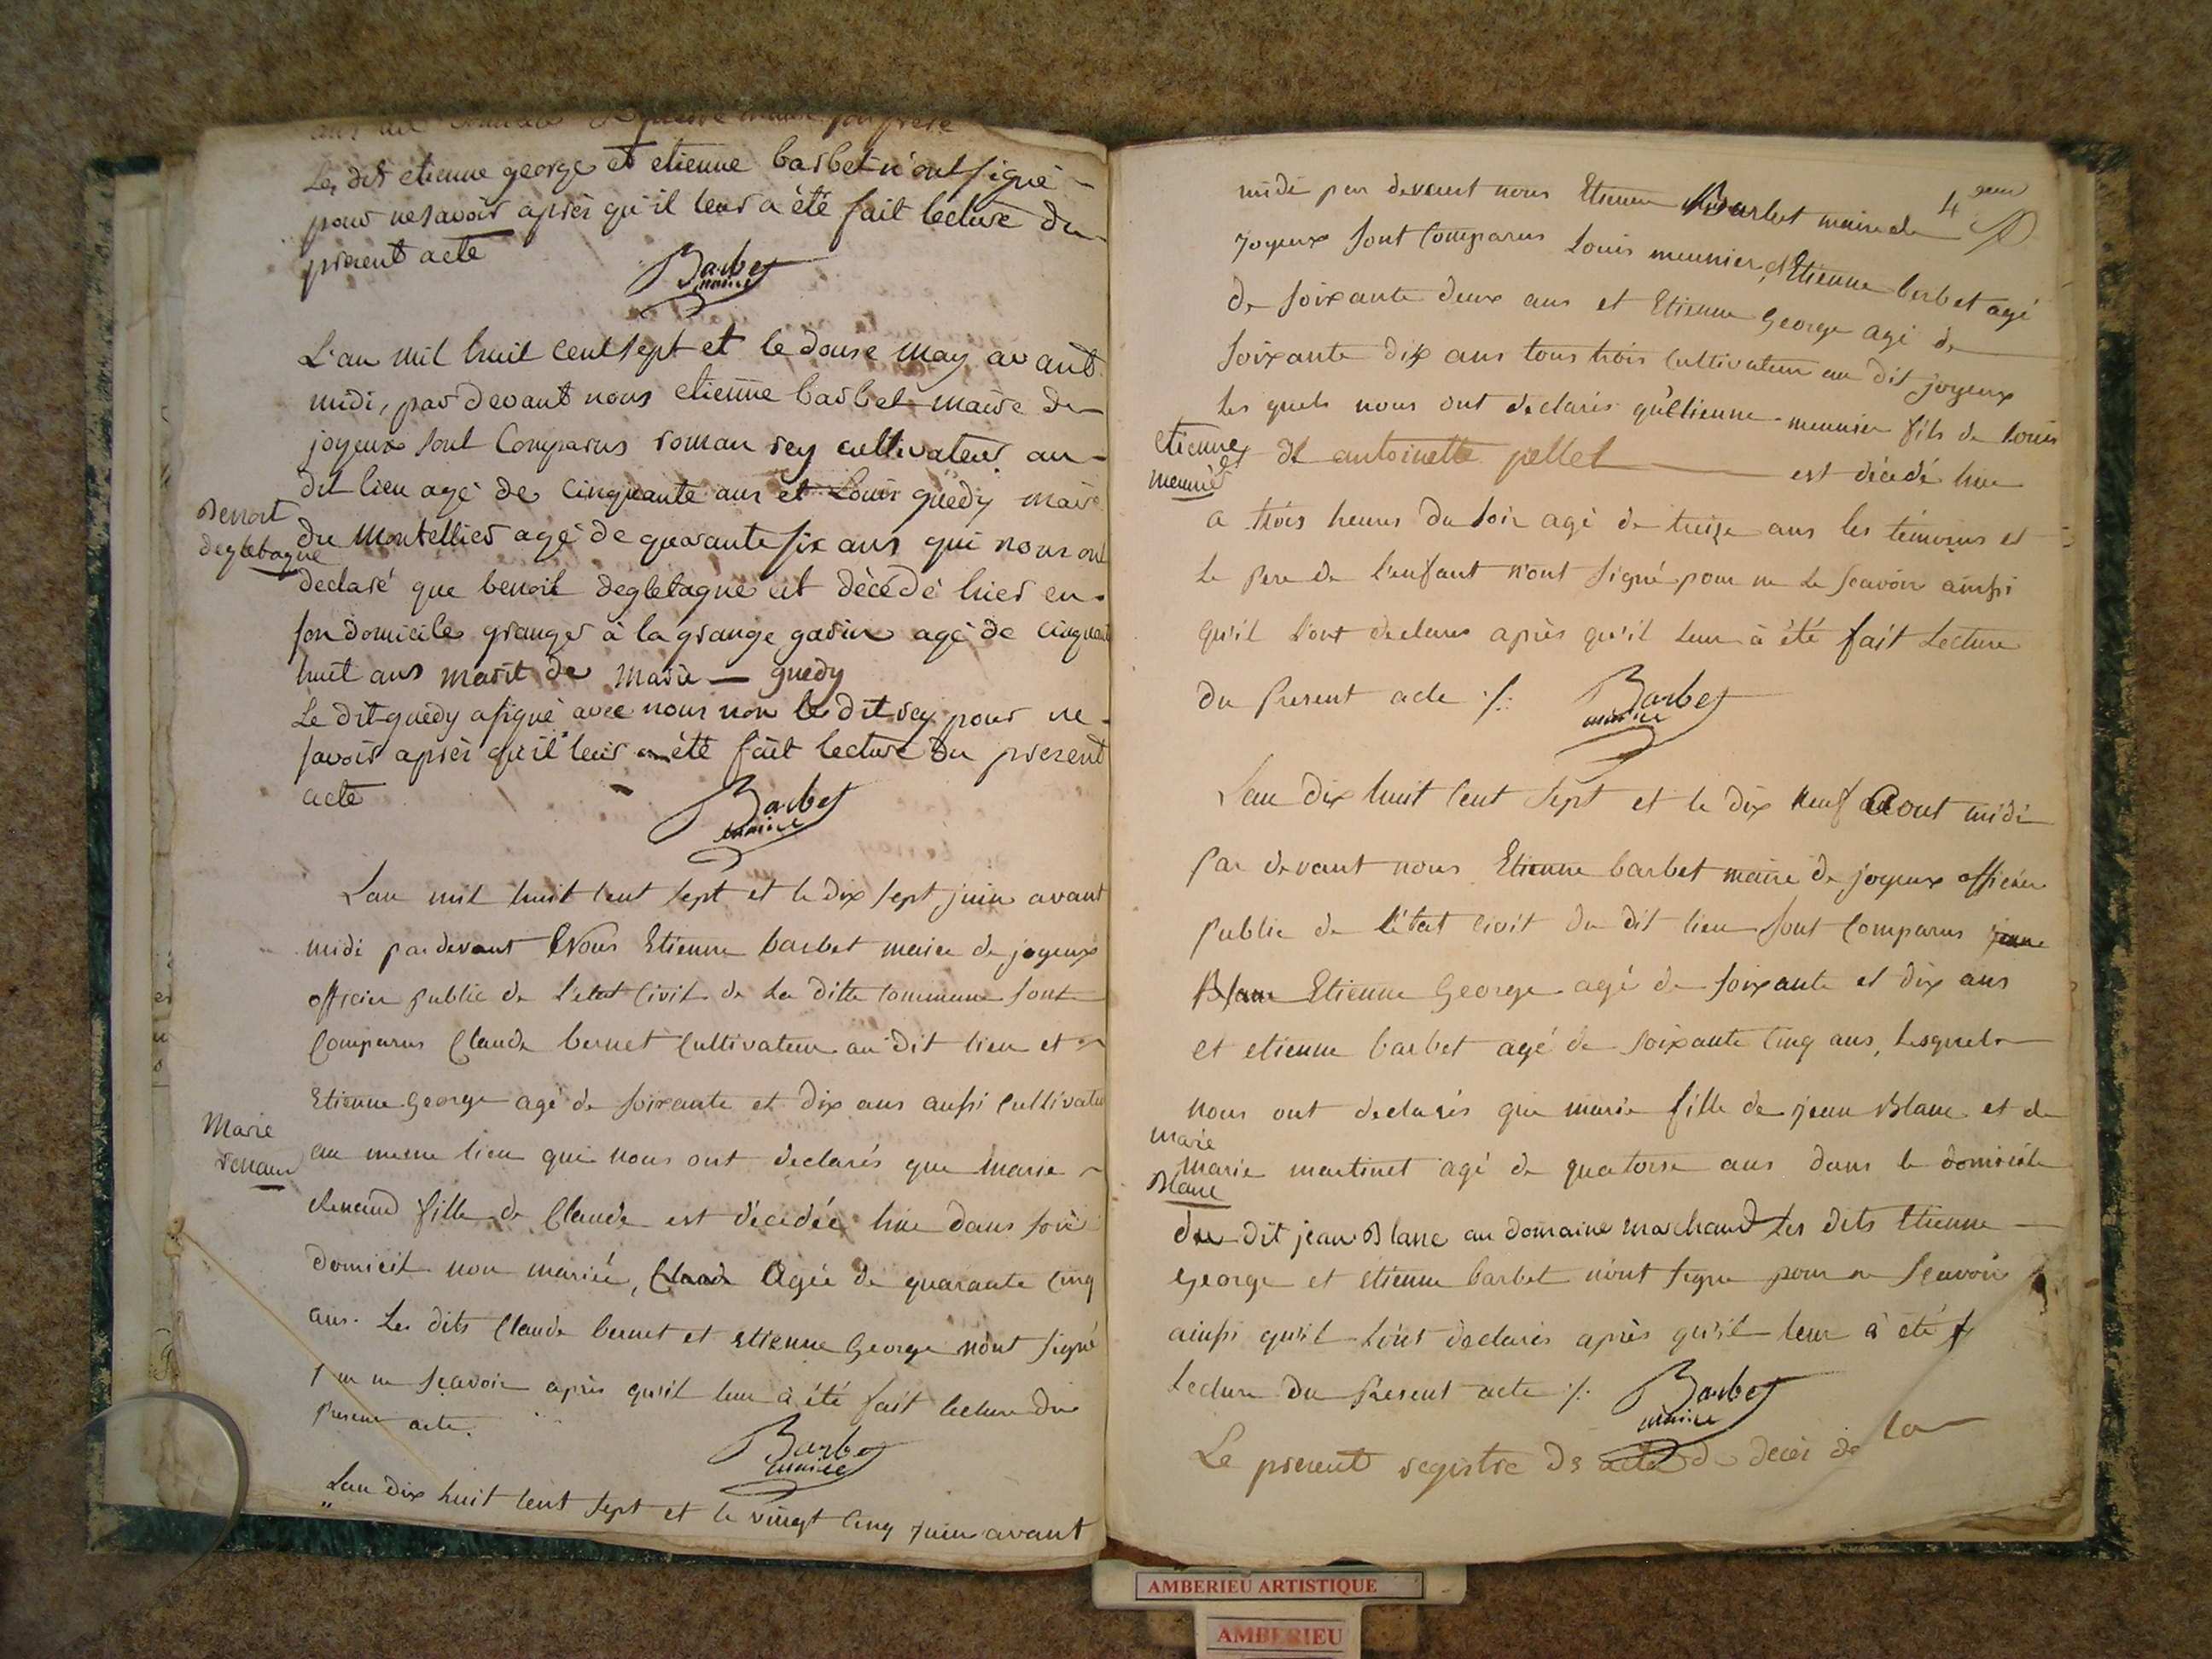 Les dit etienne george et etienne barbet n'ont signé
pour ne savoir après qu'il leur a été fait lecture du
present acte
Barbet
maire
L'an mil huit cent sept et le douse may avant
midi, par devant nous etienne barbet maire de
joyeux sont Comparus roman rey cultivateur au
dit lieu agé de cinquante ans et Louis guedy maire
Benoit
degletagne
du Montellier agé de quarante six ans qui nous ont
declaré que benoit degletagne est décédé hier en
son domicile granger à la grange garin agé de cinquante
huit ans marit de Marie — guedy
Le dit guedy a signé avec nous non le dit rey pour ne
savoir après qu'il leur a été fait lecture du present
acte
Barbet
maire
L'an mil huit cent sept et le dix sept juin avant
midi par devant Nous Etienne barbet maire de joyeux
officier public de l'etat Civil de la ditte Commune sont
Comparus Claude bernet Cultivateur au dit lieu et
Etienne George agé de soixante et dix ans aussi Cultivateur
Marie
renaud
au meme lieu qui nous ont declarés que Marie
Renaud fille de Claude est décédée hier dans son
domicil non mariée, Claude Agée de quarante cinq
ans. Les dits Claude bernet et Etienne George n'ont signé
ne sçavoir après qu'il leur à été fait lecture du
present acte.
Barbet
maire
L'an dix huit cent sept et le vingt cinq juin avant
4
midi par devant nous Etienne Barbet maire de
joyeux sont Comparus Louis meunier, Etienne barbet agé
de soixante deux ans et Etienne George agé de
soixante dix ans tous trois Cultivateur au dit joyeux
les quels nous ont declarés qu'Etienne meunier fils de Louis
etienne
meunier
et antoinette pellet — est décédé hier
a trois heures du soir agé de treize ans les témoins et
le pere de l'enfant n'ont signé pour ne le scavoir ainsi
qu'il l'ont declarer après qu'il leur à été fait Lecture
du Present acte ./.
Barbet
maire
L'an dix huit Cent Sept et le dix neuf Aout midi
par devant nous Etienne barbet maire de joyeux officier
public de l'état Civil du dit lieu sont Comparus jean
Blanc Etienne George agé de soixante et dix ans
et etienne barbet agé de soixante cinq ans, lesquels
nous ont declarés que marie fille de jean Blanc et de
marie
Blanc
marie martinet agé de quatorse ans dans le domicile
du dit jean Blanc au domaine marchand Les dits Etienne
George et etienne barbet n'ont signe pour ne sçavoir
ainsi qu'il l'ont declarés après qu'il leur à été f
lecture du Present acte ./.
Barbet
maire
Le present registre ds acte de deces de la
AMBERIEU ARTISTIQUE
AMBERIEU